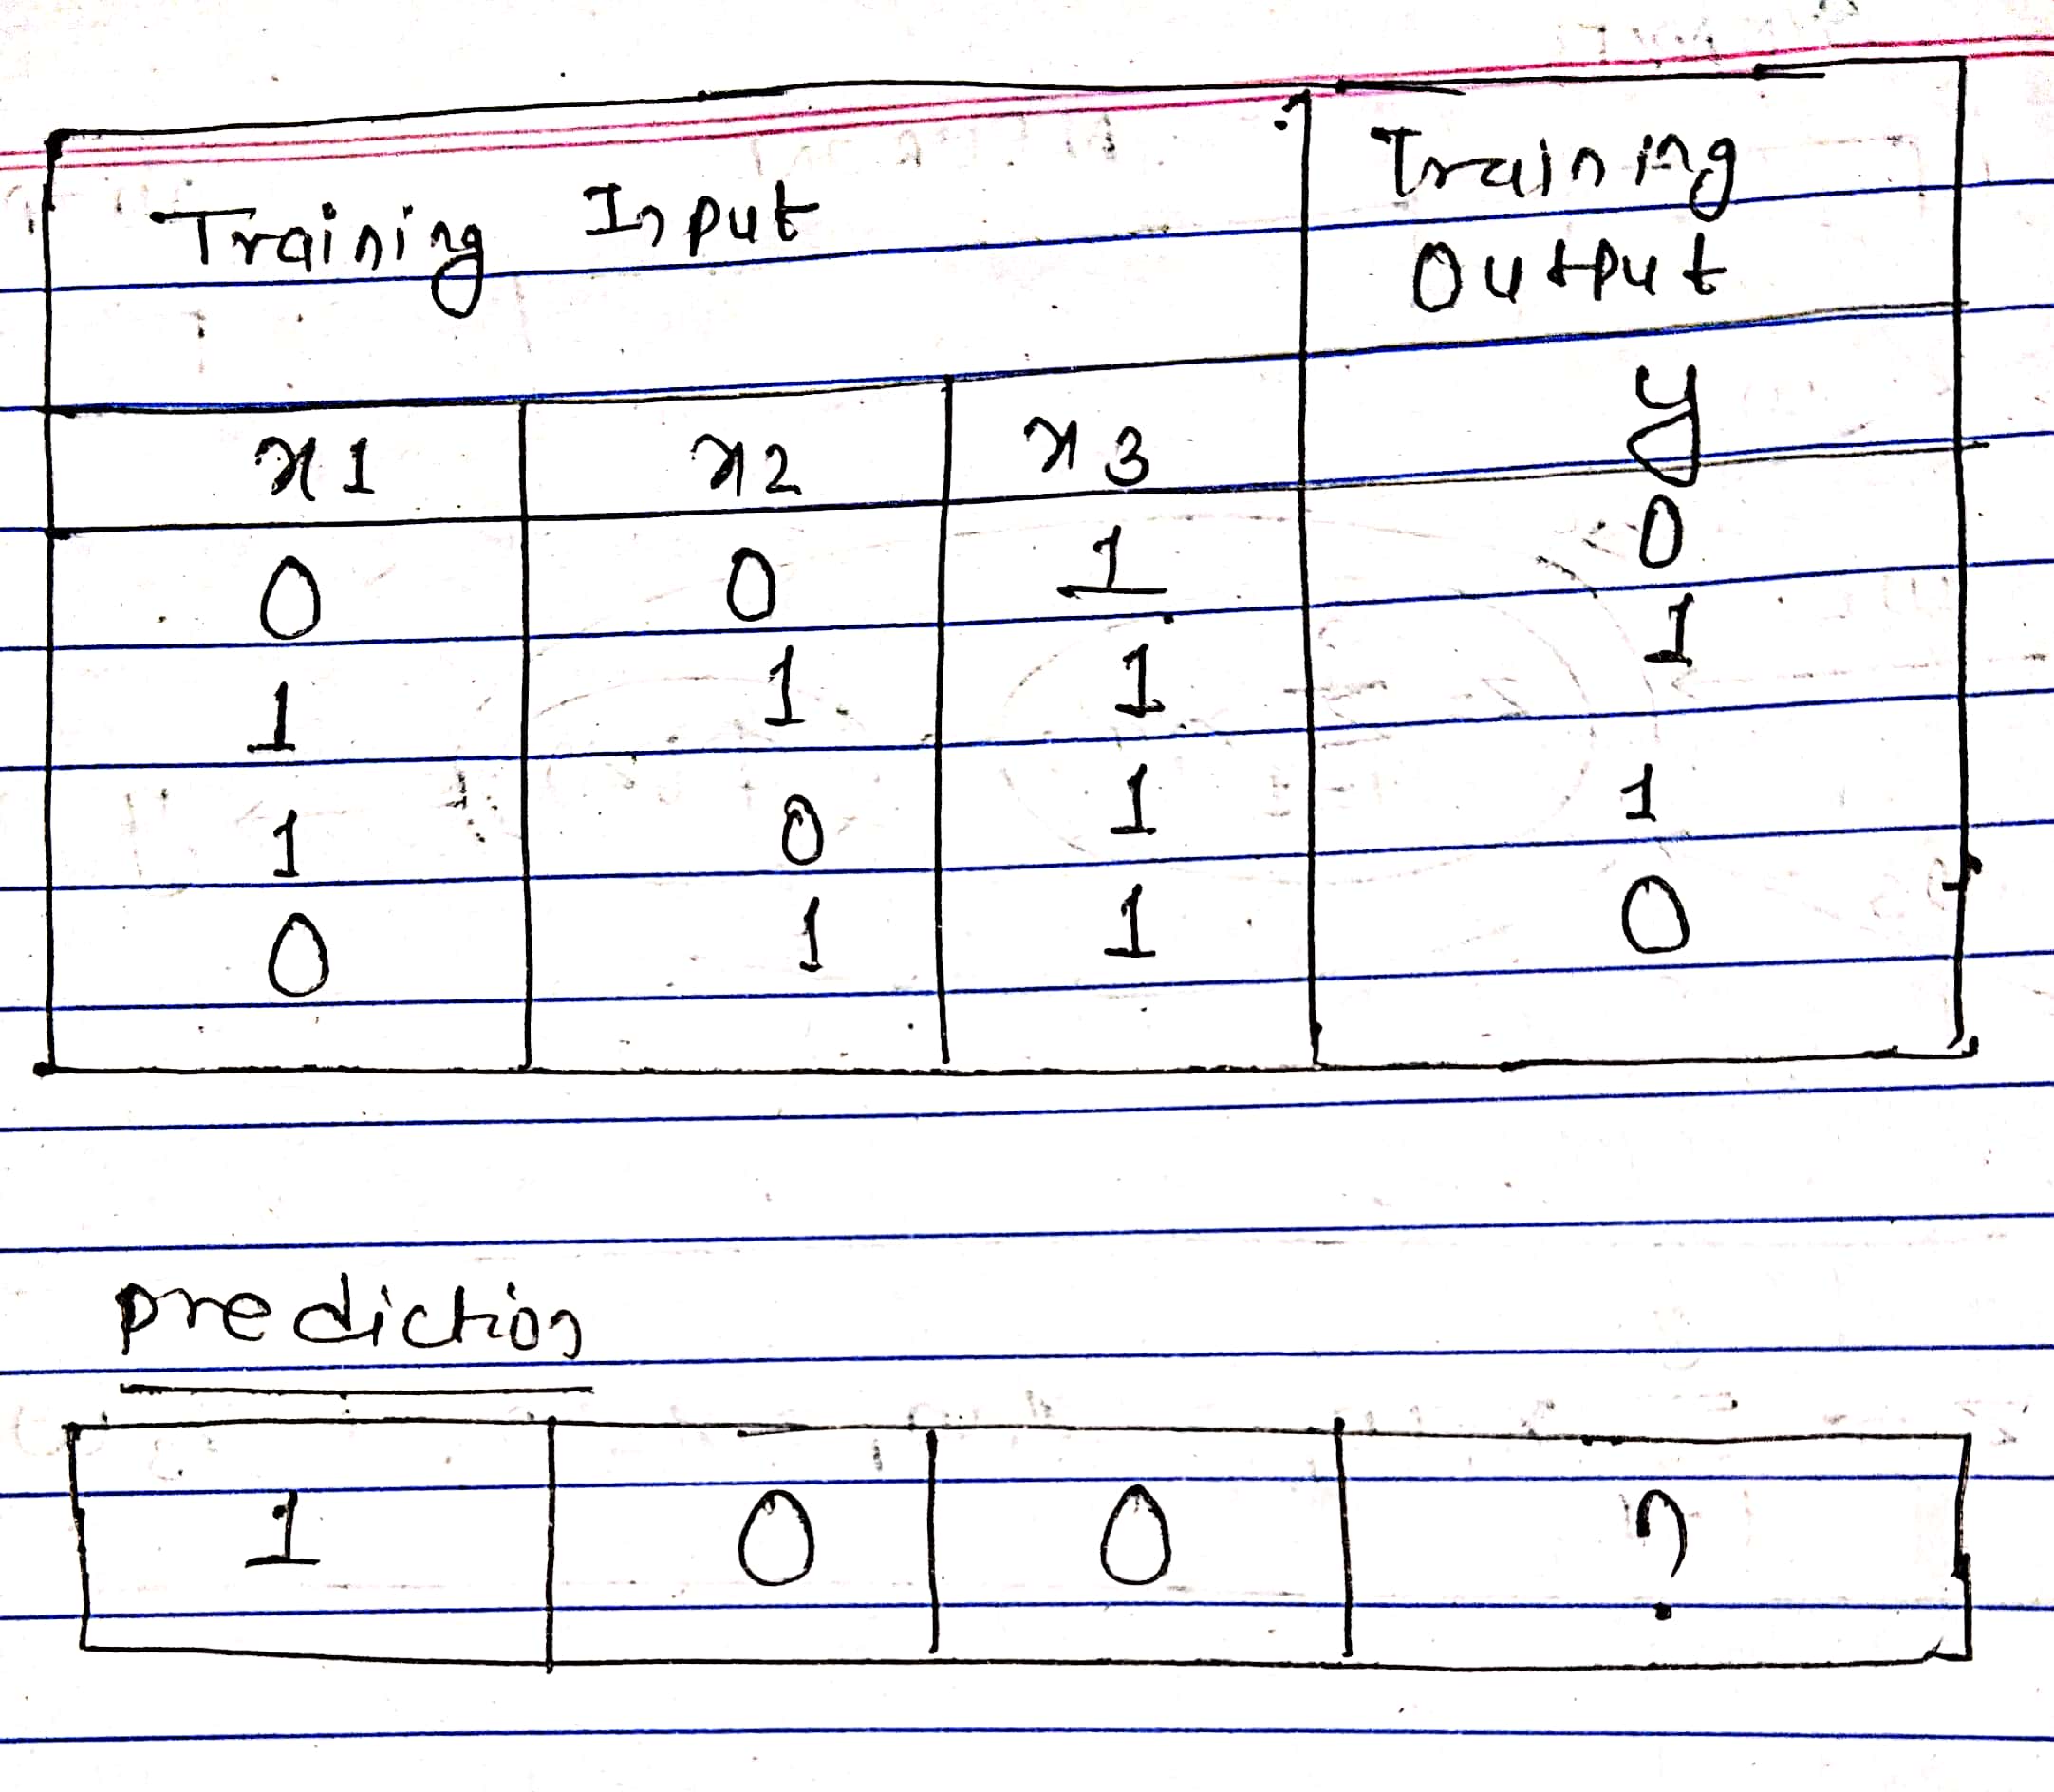 Training Input Training
Output
x1 x2 x3 y
0 0 1 0
1 1 1 1
1 0 1 1
0 1 1 0
prediction
1 0 0 ?